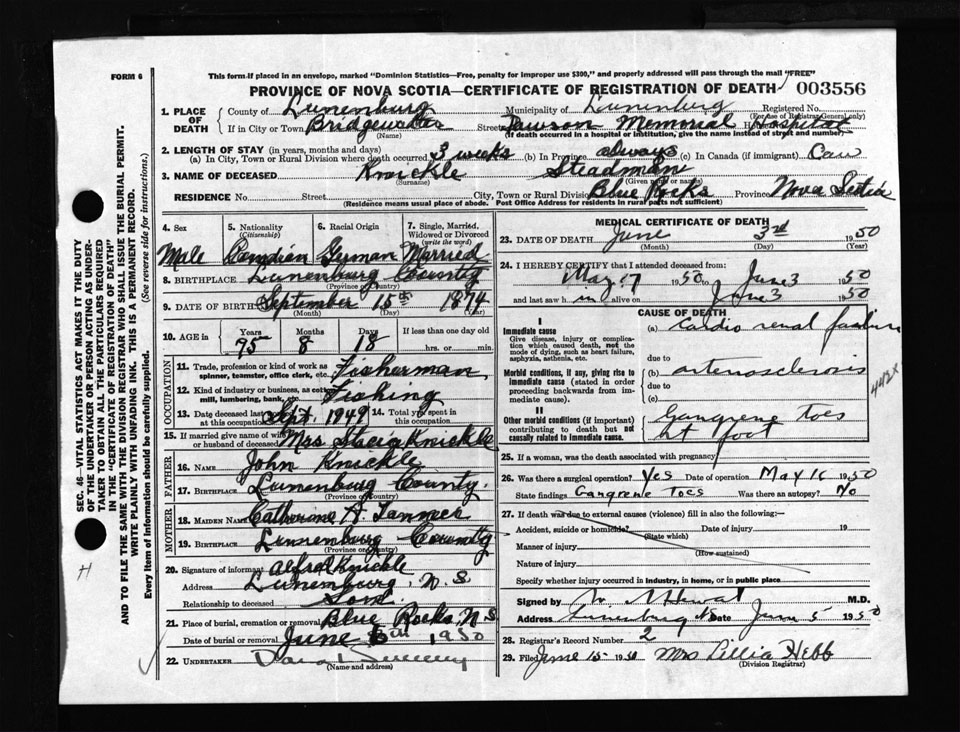 FORM 6
This form if placed in an envelope, marked "Dominion Statistics—Free, penalty for improper use $300," and properly addressed will pass through the mail "FREE"
PROVINCE OF NOVA SCOTIA—CERTIFICATE OF REGISTRATION OF DEATH 003556
1. PLACE OF DEATH County of Lunenburg Municipality of Lunenburg Registered No.
(For use of Registrar General only)
If in City or Town Bridgewater Street Dawson Memorial Hospital
(Name) (If death occurred in a hospital or institution, give the name instead of street and number)
2. LENGTH OF STAY (in years, months and days)
(a) In City, Town or Rural Division where death occurred 3 weeks (b) In Province always (c) In Canada (if immigrant) Can
3. NAME OF DECEASED Knickle Steadman
(Surname) (Given name or names)
RESIDENCE No. Street City, Town or Rural Division Blue Rocks Province Nova Scotia
(Residence means usual place of abode. Post Office Address for residents in rural parts not sufficient)
4. Sex 5. Nationality (Citizenship) 6. Racial Origin 7. Single, Married, Widowed or Divorced (write the word)
Male Canadian German Married
8. BIRTHPLACE Lunenburg County
(Province or Country)
9. DATE OF BIRTH September 15th 1874
(Month) (Day) (Year)
10. AGE in Years Months Days If less than one day old
75 8 18 hrs. or min.
OCCUPATION
11. Trade, profession or kind of work as spinner, teamster, office clerk, etc. Fisherman
12. Kind of industry or business, as cotton mill, lumbering, bank, etc. Fishing
13. Date deceased last worked at this occupation Sept. 1949 14. Total yrs spent in this occupation
15. If married give name of wife or husband of deceased Mrs Stacia Knickle
FATHER
16. NAME John Knickle
17. BIRTHPLACE Lunenburg County.
(Province or Country)
MOTHER
18. MAIDEN NAME Catherine A.
19. BIRTHPLACE Lunenburg County
(Province or Country)
20. Signature of informant Alfred Knickle
Address Lunenburg, N. S
Relationship to deceased Son
21. Place of burial, cremation or removal Blue Rocks, N.S
Date of burial or removal June 1950
22. UNDERTAKER
(Name and address)
MEDICAL CERTIFICATE OF DEATH
23. DATE OF DEATH June 3rd 1950
(Month) (Day) (Year)
24. I HEREBY CERTIFY that I attended deceased from:
May 17 1950 to June 3 1950
and last saw him alive on June 3 1950
CAUSE OF DEATH
I
Immediate cause
Give disease, injury or complication which caused death, not the mode of dying, such as heart failure, asphyxia, asthenia, etc.
(a) Cardio renal failure
due to
Morbid conditions, if any, giving rise to immediate cause (stated in order proceeding backwards from immediate cause)
(b) arteriosclerosis
due to
(c)
442x
II
Other morbid conditions (if important) contributing to death but not causally related to immediate cause.
Gangrene toes
Lt foot
25. If a woman, was the death associated with pregnancy?
26. Was there a surgical operation? Yes Date of operation May 16 1950
State findings Gangrene Toes Was there an autopsy? No
27. If death was due to external causes (violence) fill in also the following:—
Accident, suicide or homicide? Date of injury 19
(State which)
Manner of injury
(How sustained)
Nature of injury
Specify whether injury occurred in industry, in home, or in public place
Signed by M.D.
Address Lunenburg NS Date June 5 1950
28. Registrar's Record Number 2
29. Filed June 15 1950 Mrs Lillia Hebb
(Division Registrar)
SEC. 46—VITAL STATISTICS ACT MAKES IT THE DUTY
OF THE UNDERTAKER OR PERSON ACTING AS UNDERTAKER TO OBTAIN ALL THE PARTICULARS REQUIRED
IN THE "CERTIFICATE OF REGISTRATION OF DEATH"
AND TO FILE THE SAME WITH THE DIVISION REGISTRAR WHO SHALL ISSUE THE BURIAL PERMIT.
WRITE PLAINLY WITH UNFADING INK. THIS IS A PERMANENT RECORD.
Every item of information should be carefully supplied. (See reverse side for instructions.)
H